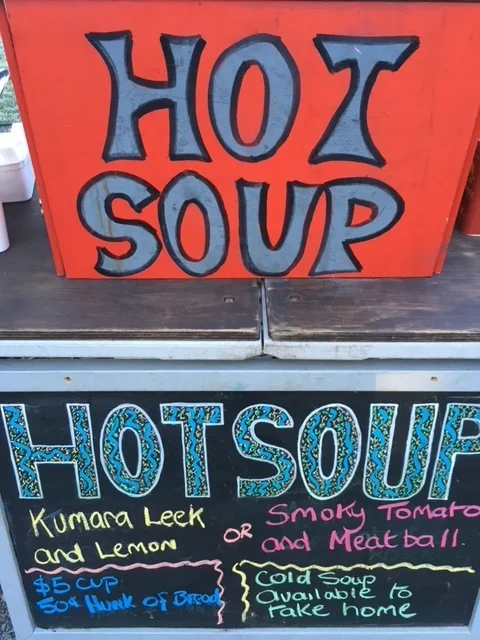 HOT
SOUP
HOT SOUP
Kumara Leek
and Lemon
OR
Smoky Tomato
and Meatball.
$5 CUP
50¢ Hunk of Bread
Cold Soup
available to
take home